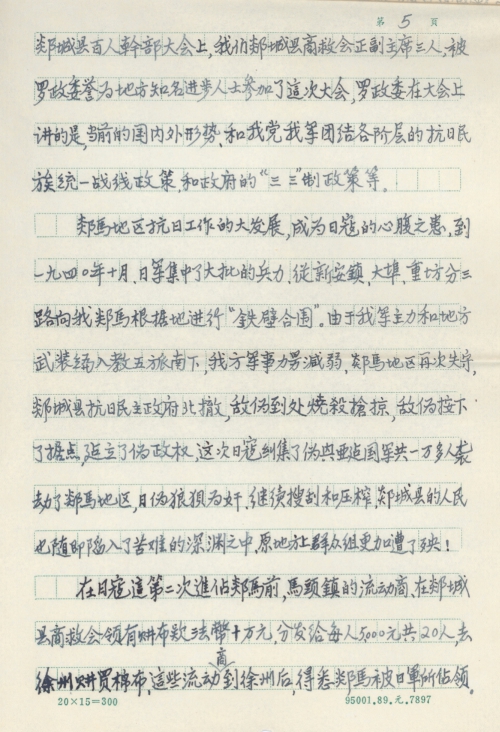 第 5 頁
郯城县百人幹部大会上,我们郯城县商救会正副主席三人,被
罗政委誉为地方知名进步人士参加了這次大会,罗政委在大会上
讲的是,当前的国内外形势、和我党我军团结各阶层的抗日民
族统一战线政策,和政府的“三三”制政策等。
郯馬地区抗日工作的大发展,成为日寇的心腹之患,到
一九四〇年十月、日军集中了大批的兵力、從新安鎮,大埠、重坊分三
路向我郯馬根據地進行“鉄壁合围”。由于我军主力和地方
武装编入教五旅南下,我方军事力量減弱,郯馬地区再次失守,
郯城县抗日民主政府北撤,敌伪到处燒殺搶掠,敌伪按下
了据点,建立了伪政权,这次日寇纠集了伪與亚点国军共一万多人襲
去了郯馬地区,日伪狼狽为奸,继续搜刮和压榨,郯城县的人民
也随即陷入了苦难的深渊之中,原地方上群众组更加遭了殃!
在日寇這第二次進佔郯馬前,馬頭鎮的流动商、在郯城
县商救会领有购布欵法幣十万元,分发给每人5000元共20人,去
徐州购買棉布,這些流动商到徐州后,得悉郯馬被日軍所佔領。
20×15=300
95001.89.元.7897